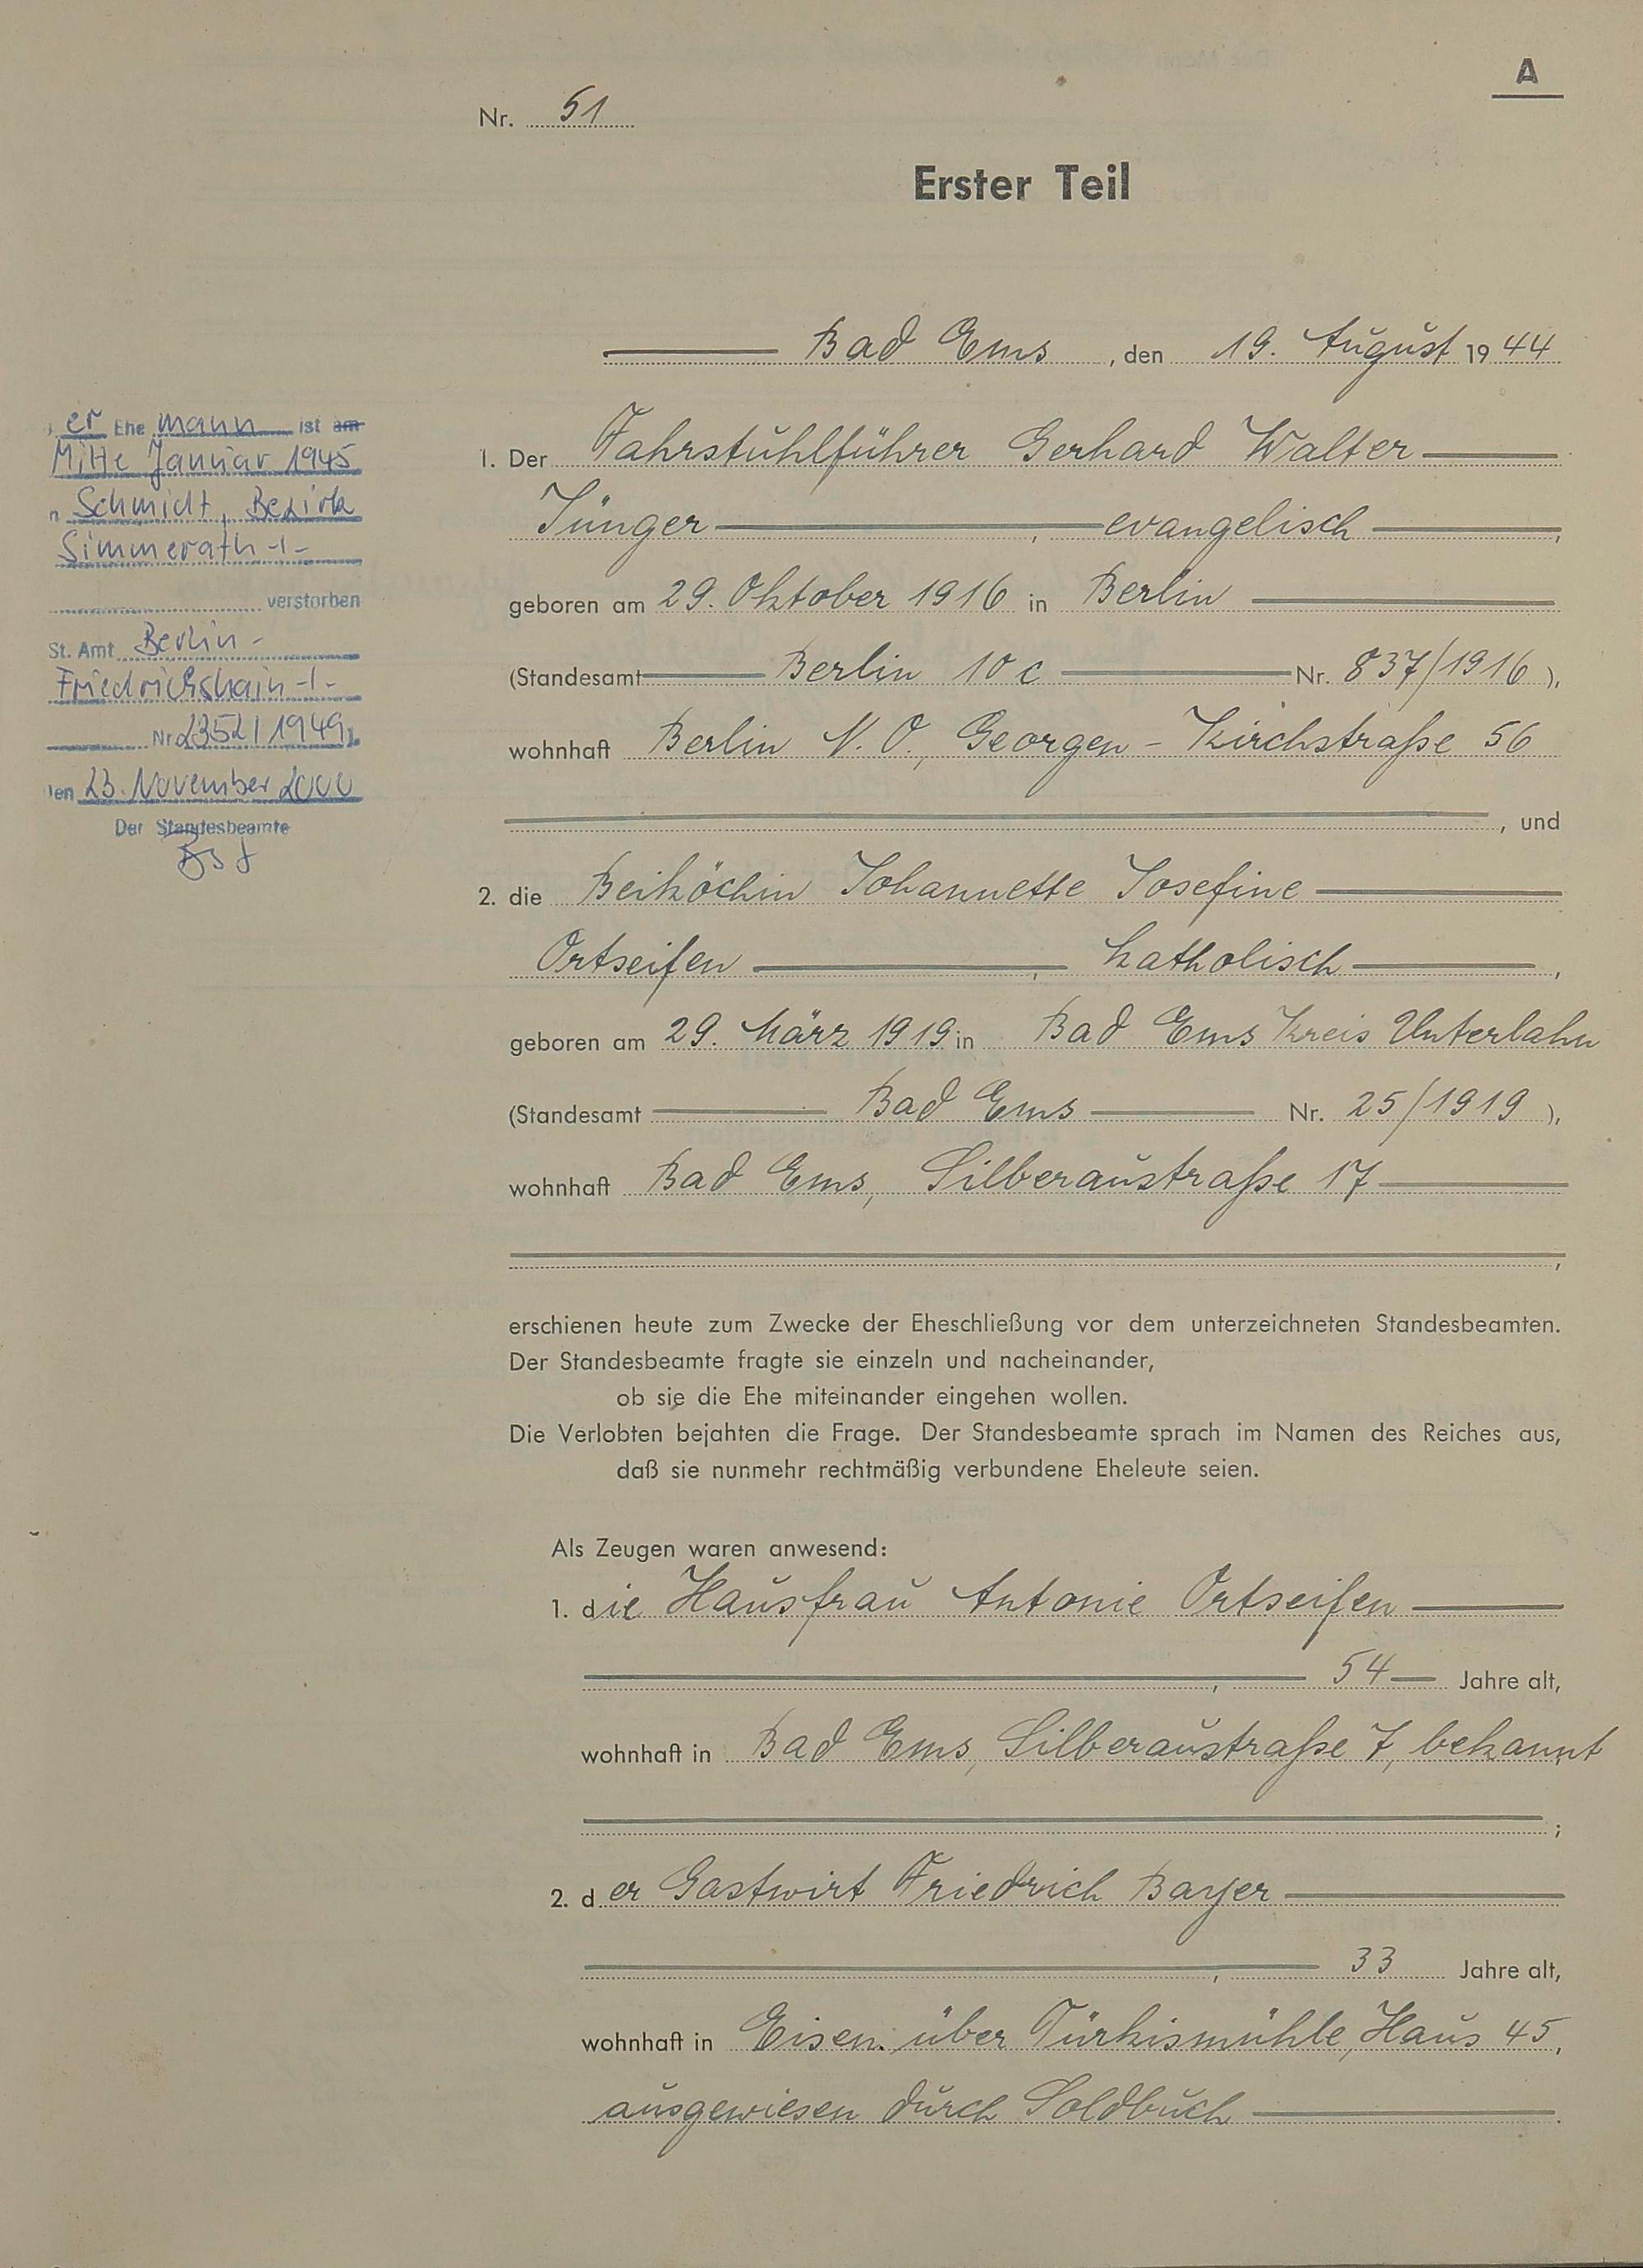 A
Nr. 51
Erster Teil
Bad Ems, den 19. August 1944
er Ehe mann ist am
Mitte Januar 1945
n Schmidt, Bezirk
Simmerath -/-
verstorben
St. Amt Berlin-
Friedrichshain -/-
Nr 2352/1949).
den 23. November 2000
Der Standesbeamte
1. Der Fahrstuhlführer Gerhard Walter
Jünger, evangelisch,
geboren am 29. Oktober 1916 in Berlin
(Standesamt Berlin 10 c Nr. 837/1916),
wohnhaft Berlin N.O., Georgen-Kirchstraße 56
, und
2. die Beiköchin Johannette Josefine
Ortseifen, katholisch,
geboren am 29. März 1919 in Bad Ems Kreis Unterlahn
(Standesamt Bad Ems Nr. 25/1919),
wohnhaft Bad Ems, Silberaustraße 17
,
erschienen heute zum Zwecke der Eheschließung vor dem unterzeichneten Standesbeamten.
Der Standesbeamte fragte sie einzeln und nacheinander,
ob sie die Ehe miteinander eingehen wollen.
Die Verlobten bejahten die Frage. Der Standesbeamte sprach im Namen des Reiches aus,
daß sie nunmehr rechtmäßig verbundene Eheleute seien.
Als Zeugen waren anwesend:
1. die Hausfrau Antonie Ortseifen
, 54 Jahre alt,
wohnhaft in Bad Ems, Silberaustraße 7, bekannt
;
2. der Gastwirt Friedrich Bayer
, 33 Jahre alt,
wohnhaft in Eisen über Türkismühle, Haus 45,
ausgewiesen durch Soldbuch.